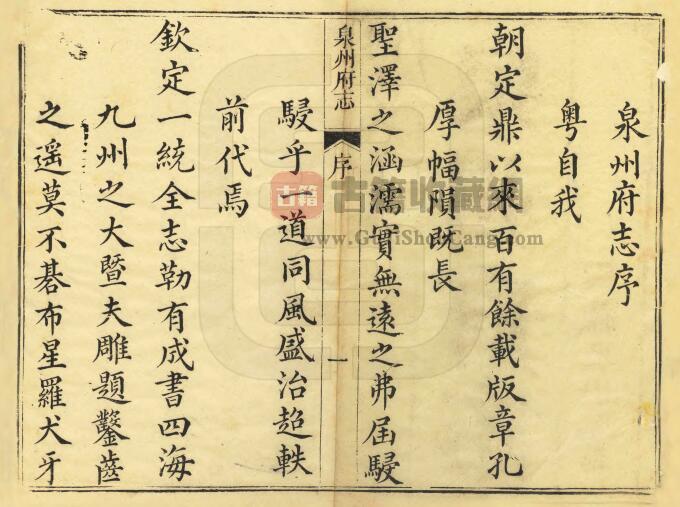 泉州府志序
粤自我
朝定鼎以來百有餘載版章孔
厚幅隕既長
聖澤之涵濡實無遠之弗届駸
泉州府志
序
一
駸乎一道同風盛治超軼
前代焉
欽定一統全志勒有成書四海
九州之大暨夫雕題鑿齒
之遥莫不棊布星羅犬牙
古籍
古籍收藏網
www.GujiShouCang.com